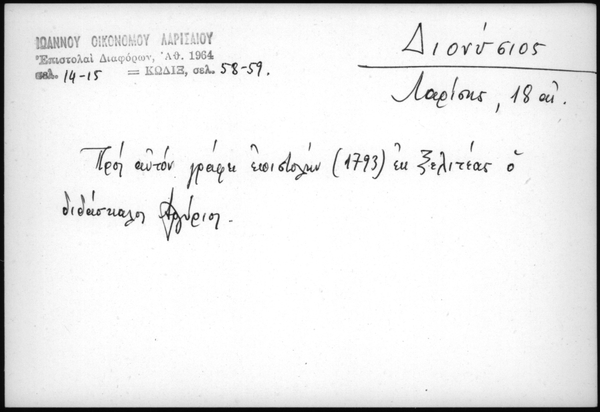 ΙΩΑΝΝΟΥ ΟΙΚΟΝΟΜΟΥ ΛΑΡΙΣΑΙΟΥ
Ἐπιστολαὶ Διαφόρων, Ἀθ. 1964
σελ. 14-15 = ΚΩΔΙΞ, σελ. 58-59.
Διονύσιος
Λαρίσης, 18 αἰ.
Πρὸς αὐτὸν γράφει ἐπιστολὴν (1793) ἐκ Σελιτσάς ὁ
διδάσκαλος Ἀργύριος.